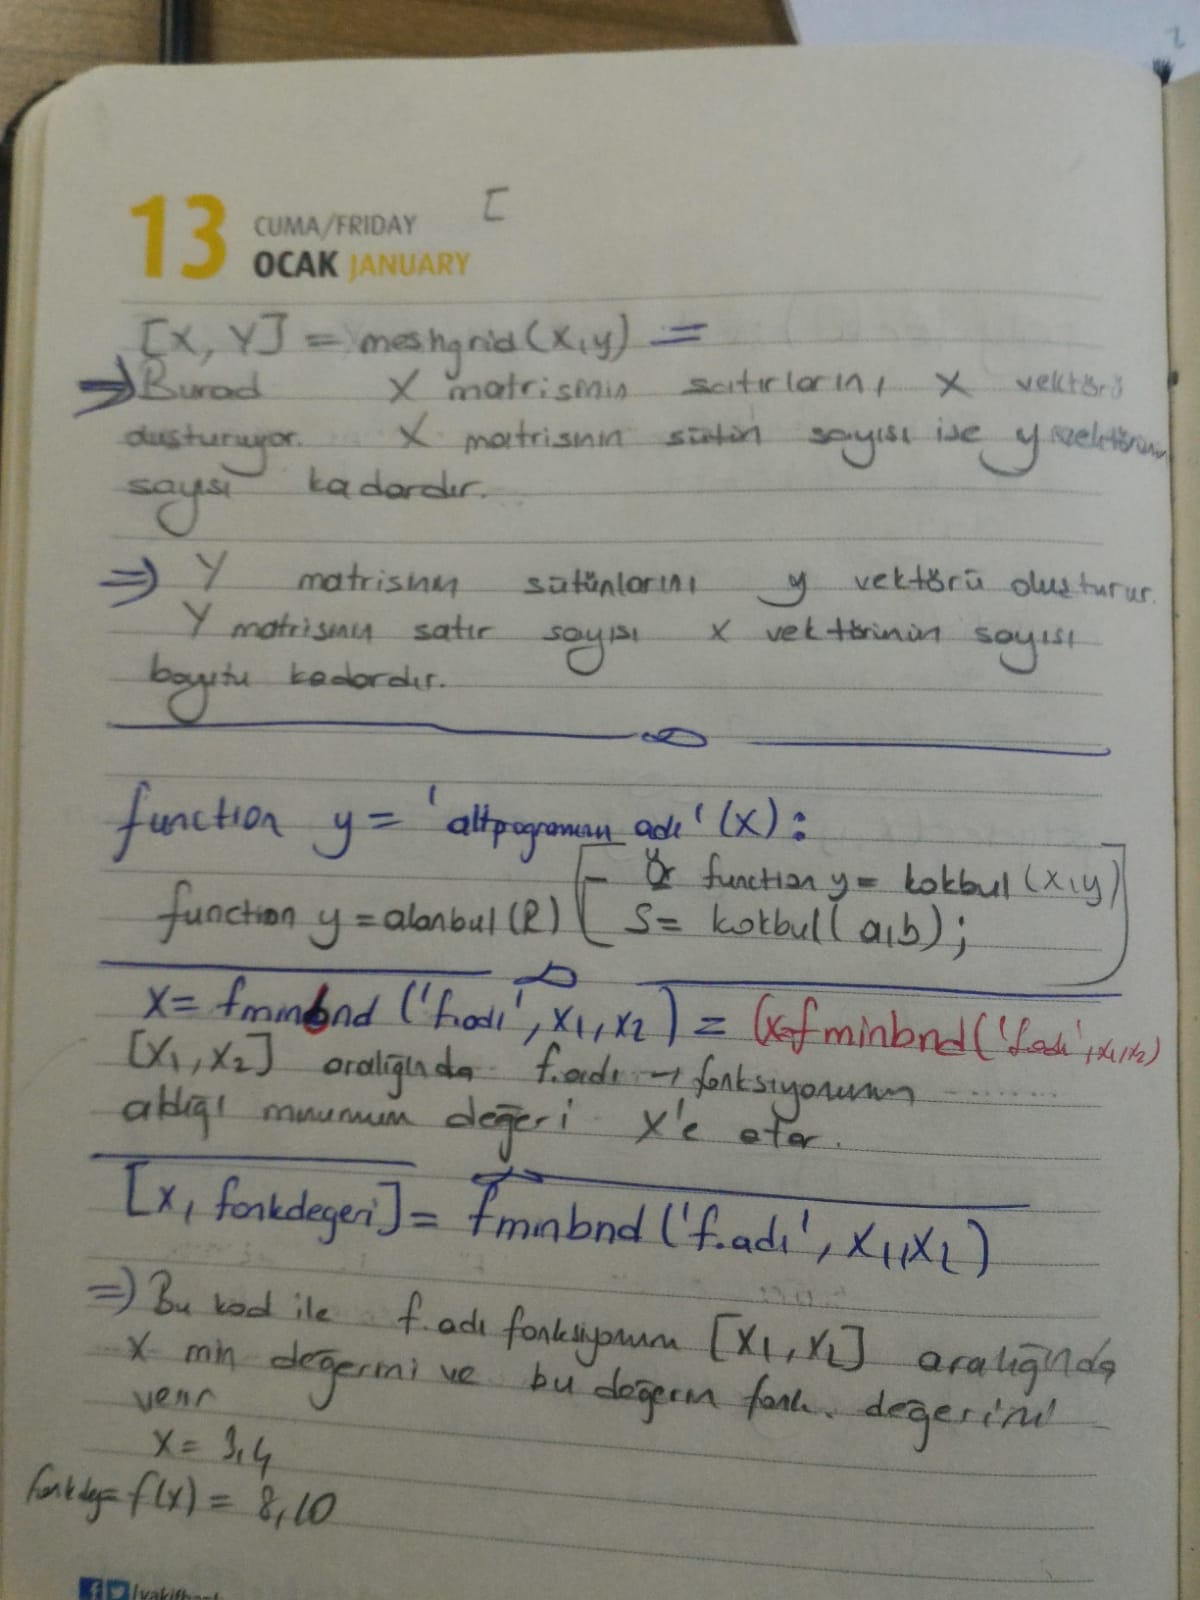 13 CUMA/FRIDAY [
OCAK JANUARY
[X, Y] = meshgrid(x,y) =
⇒ Burad X matrisinin satırlarını x vektörü
oluşturuyor. X matrisinin sütün sayısı ise y vektörünün
sayısı kadardır.
⇒ Y matrisinin sütünlarını y vektörü oluşturur.
Y matrisinin satır sayısı x vektörinin sayısı
boyutu kadardır.
function y = 'altprogramın adı' (x) :
- Ör function y = kokbul(x,y)
function y = alanbul(R) S = kokbul(a,b);
x = fminbnd ('f.adı', x1, x2) = (x=fminbnd('f.adı', x1,x2)
[x1, x2] aralığında f.adı → fonksiyonunun ........
aldığı minumum değeri x'e atar.
[x, fonkdegeri] = fminbnd ('f.adı', x1,x2)
⇒ Bu kod ile f.adı fonksiyonun [x1, x2] aralığında
x min değerini ve bu değerin fonk. değerini
verir
x = 3,4
fonkdeg = f(x) = 8,10